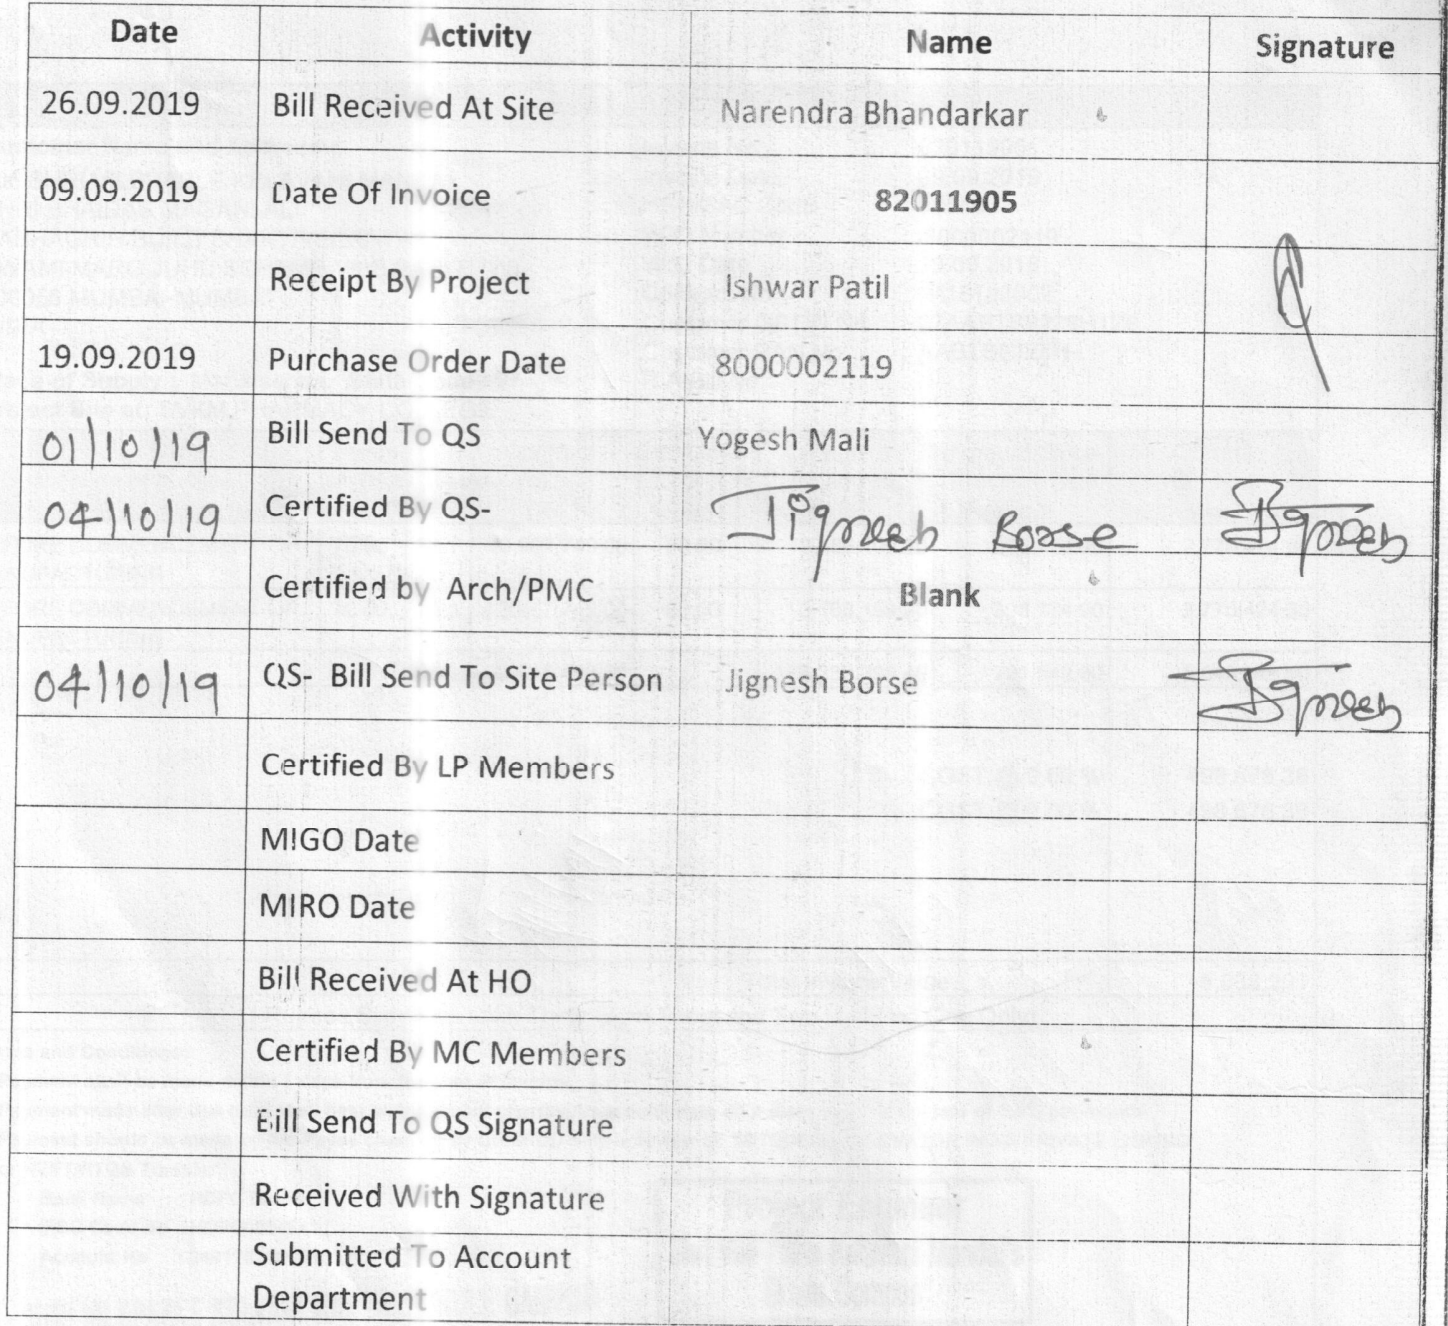 Date Activity Name Signature
26.09.2019 Bill Received At Site Narendra Bhandarkar
09.09.2019 Date Of Invoice 82011905
Receipt By Project Ishwar Patil
19.09.2019 Purchase Order Date 8000002119
01/10/19 Bill Send To QS Yogesh Mali
04/10/19 Certified By QS- Jignesh Borse Jignesh
Certified by Arch/PMC Blank
04/10/19 QS- Bill Send To Site Person Jignesh Borse Jignesh
Certified By LP Members
MIGO Date
MIRO Date
Bill Received At HO
Certified By MC Members
Bill Send To QS Signature
Received With Signature
Submitted To Account
Department